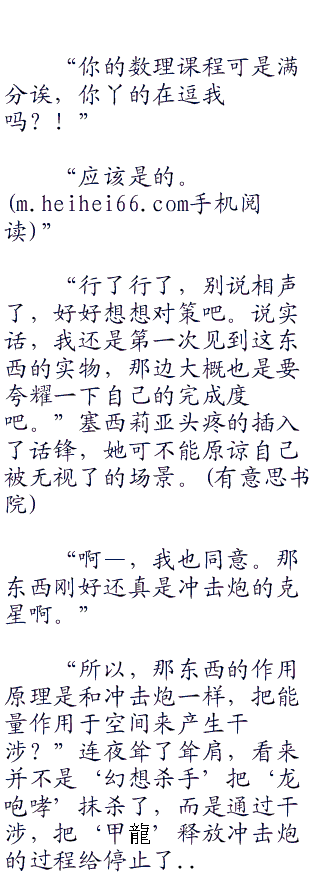 “你的数理课程可是满
分诶，你丫的在逗我
吗？！”
“应该是的。
(m.heihei66.com手机阅
读)”
“行了行了，别说相声
了，好好想想对策吧。说实
话，我还是第一次见到这东
西的实物，那边大概也是要
夸耀一下自己的完成度
吧。”塞西莉亚头疼的插入
了话锋，她可不能原谅自己
被无视了的场景。(有意思书
院)
“啊—，我也同意。那
东西刚好还真是冲击炮的克
星啊。”
“所以，那东西的作用
原理是和冲击炮一样，把能
量作用于空间来产生干
涉？”连夜耸了耸肩，看来
并不是‘幻想杀手’把‘龙
咆哮’抹杀了，而是通过干
涉，把‘甲龍’释放冲击炮
的过程给停止了..